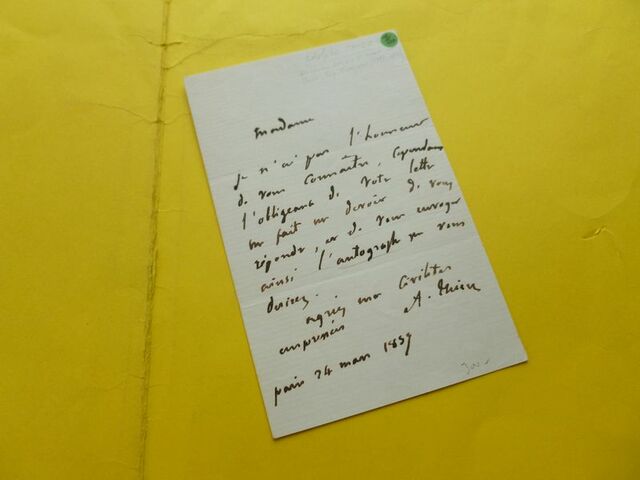 Madame
je n'ai pas l'honneur
de vous connaître, cependant
l'obligeance de votre lettre
me fait un devoir de vous
répondre, et de vous envoyer
ainsi l'autographe que vous
desirez.
agréez mes civilités
empressées A. Thiers
paris 24 mars 1859